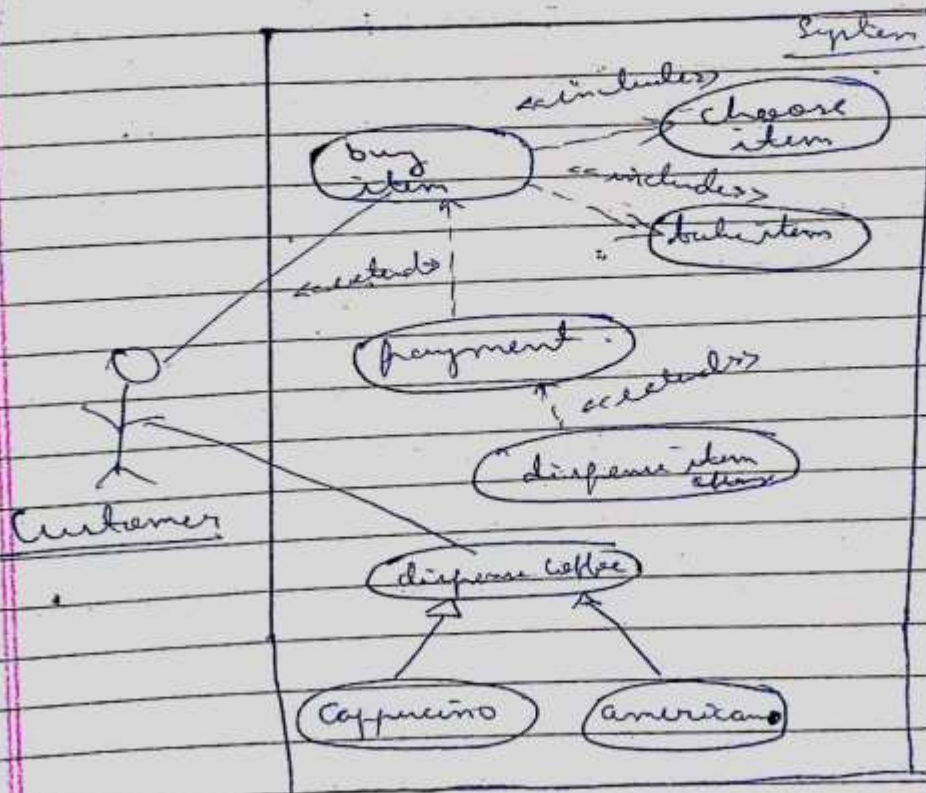 System
<<includes>>
choose
item
buy
item
<<includes>>
take item
<<extend>>
payment
<<extends>>
dispense item
Customer
dispense coffee
Cappucino
americano